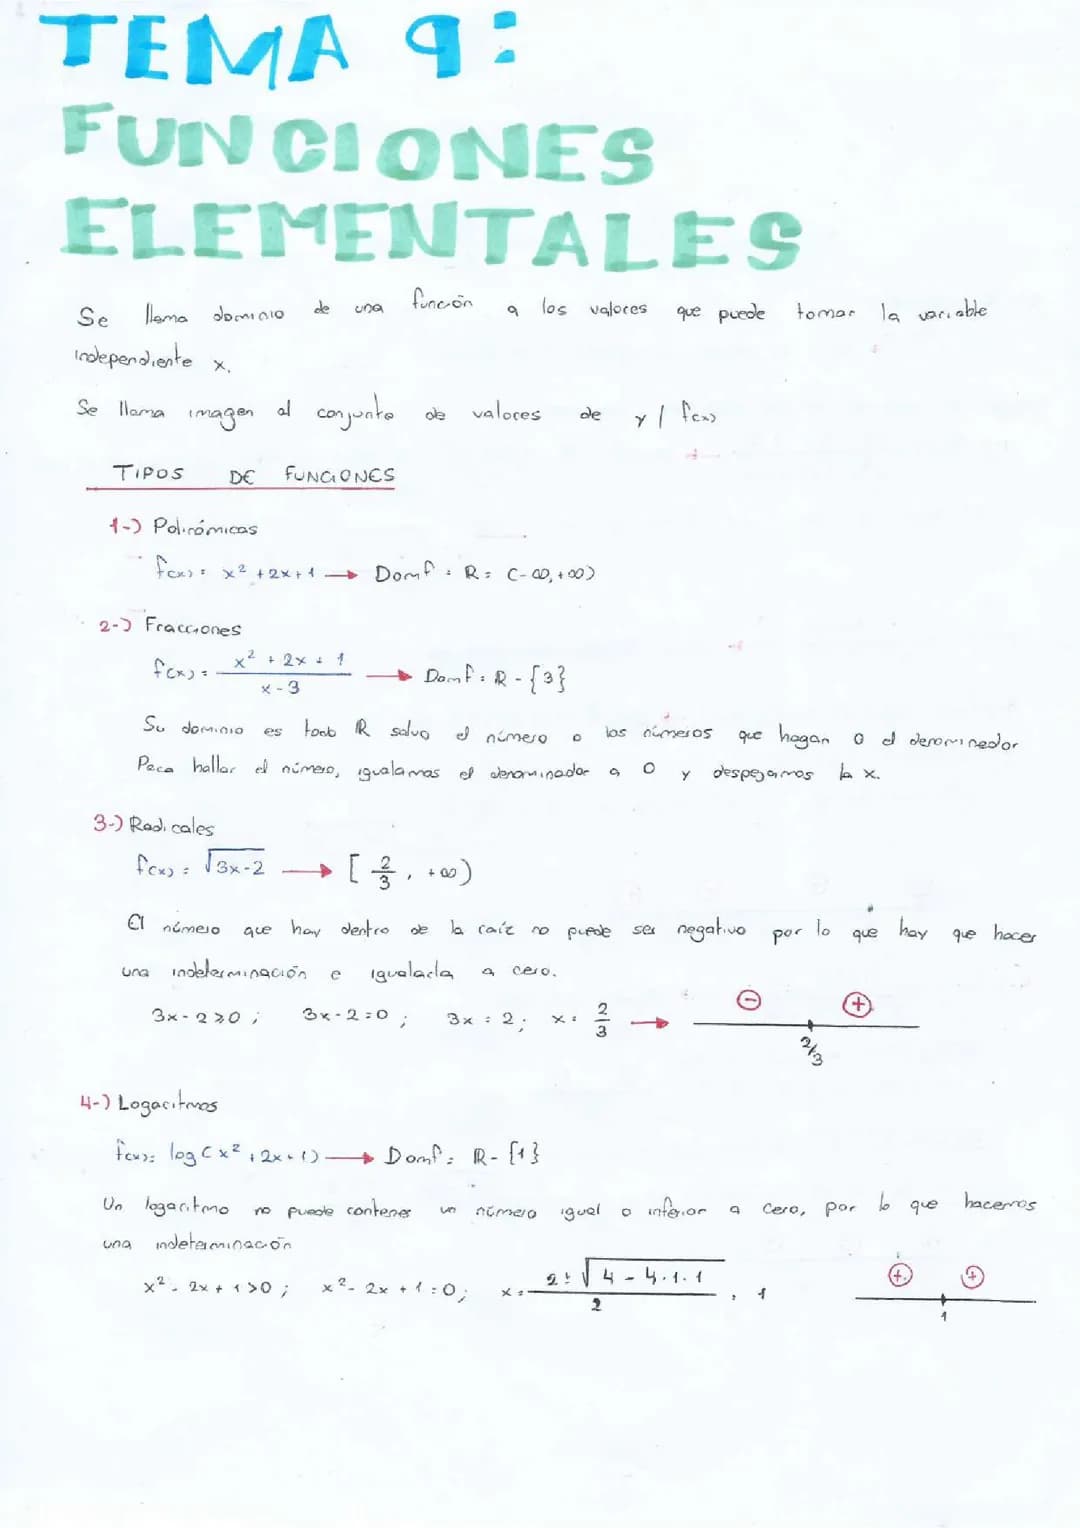 TEMA 9:
FUNCIONES
ELEMENTALES
Se llama dominio de una función a los valores que puede tomar la variable
independiente x.
Se llama imagen al conjunto de valores de y / f(x)
TIPOS DE FUNCIONES
1-) Polinómicas
f(x) = x² + 2x + 1 → Domf = R = (-∞, +∞)
2-) Fracciones
f(x) = \frac{x² + 2x + 1}{x - 3} → Domf = R - {3}
Su dominio es todo R salvo el número o los números que hagan 0 el denominador
Para hallar el número, igualamos el denominador a 0 y despejamos la x.
3-) Radicales
f(x) = √3x-2 → [2/3, +∞)
El número que hay dentro de la raíz no puede ser negativo por lo que hay que hacer
una indeterminación e igualarla a cero.
3x - 2 ≥ 0 ; 3x - 2 = 0 ; 3x = 2 ; x = 2/3 → ⊖ ⊕ 2/3
4-) Logaritmos
f(x) = log(x² + 2x + 1) → Domf = R - {1}
Un logaritmo no puede contener un número igual o inferior a cero, por lo que hacemos
una indeterminación
x² - 2x + 1 > 0 ; x² - 2x + 1 = 0 ; x = \frac{2 ± √4 - 4·1·1}{2} = 1 ⊕ ⊕ 1